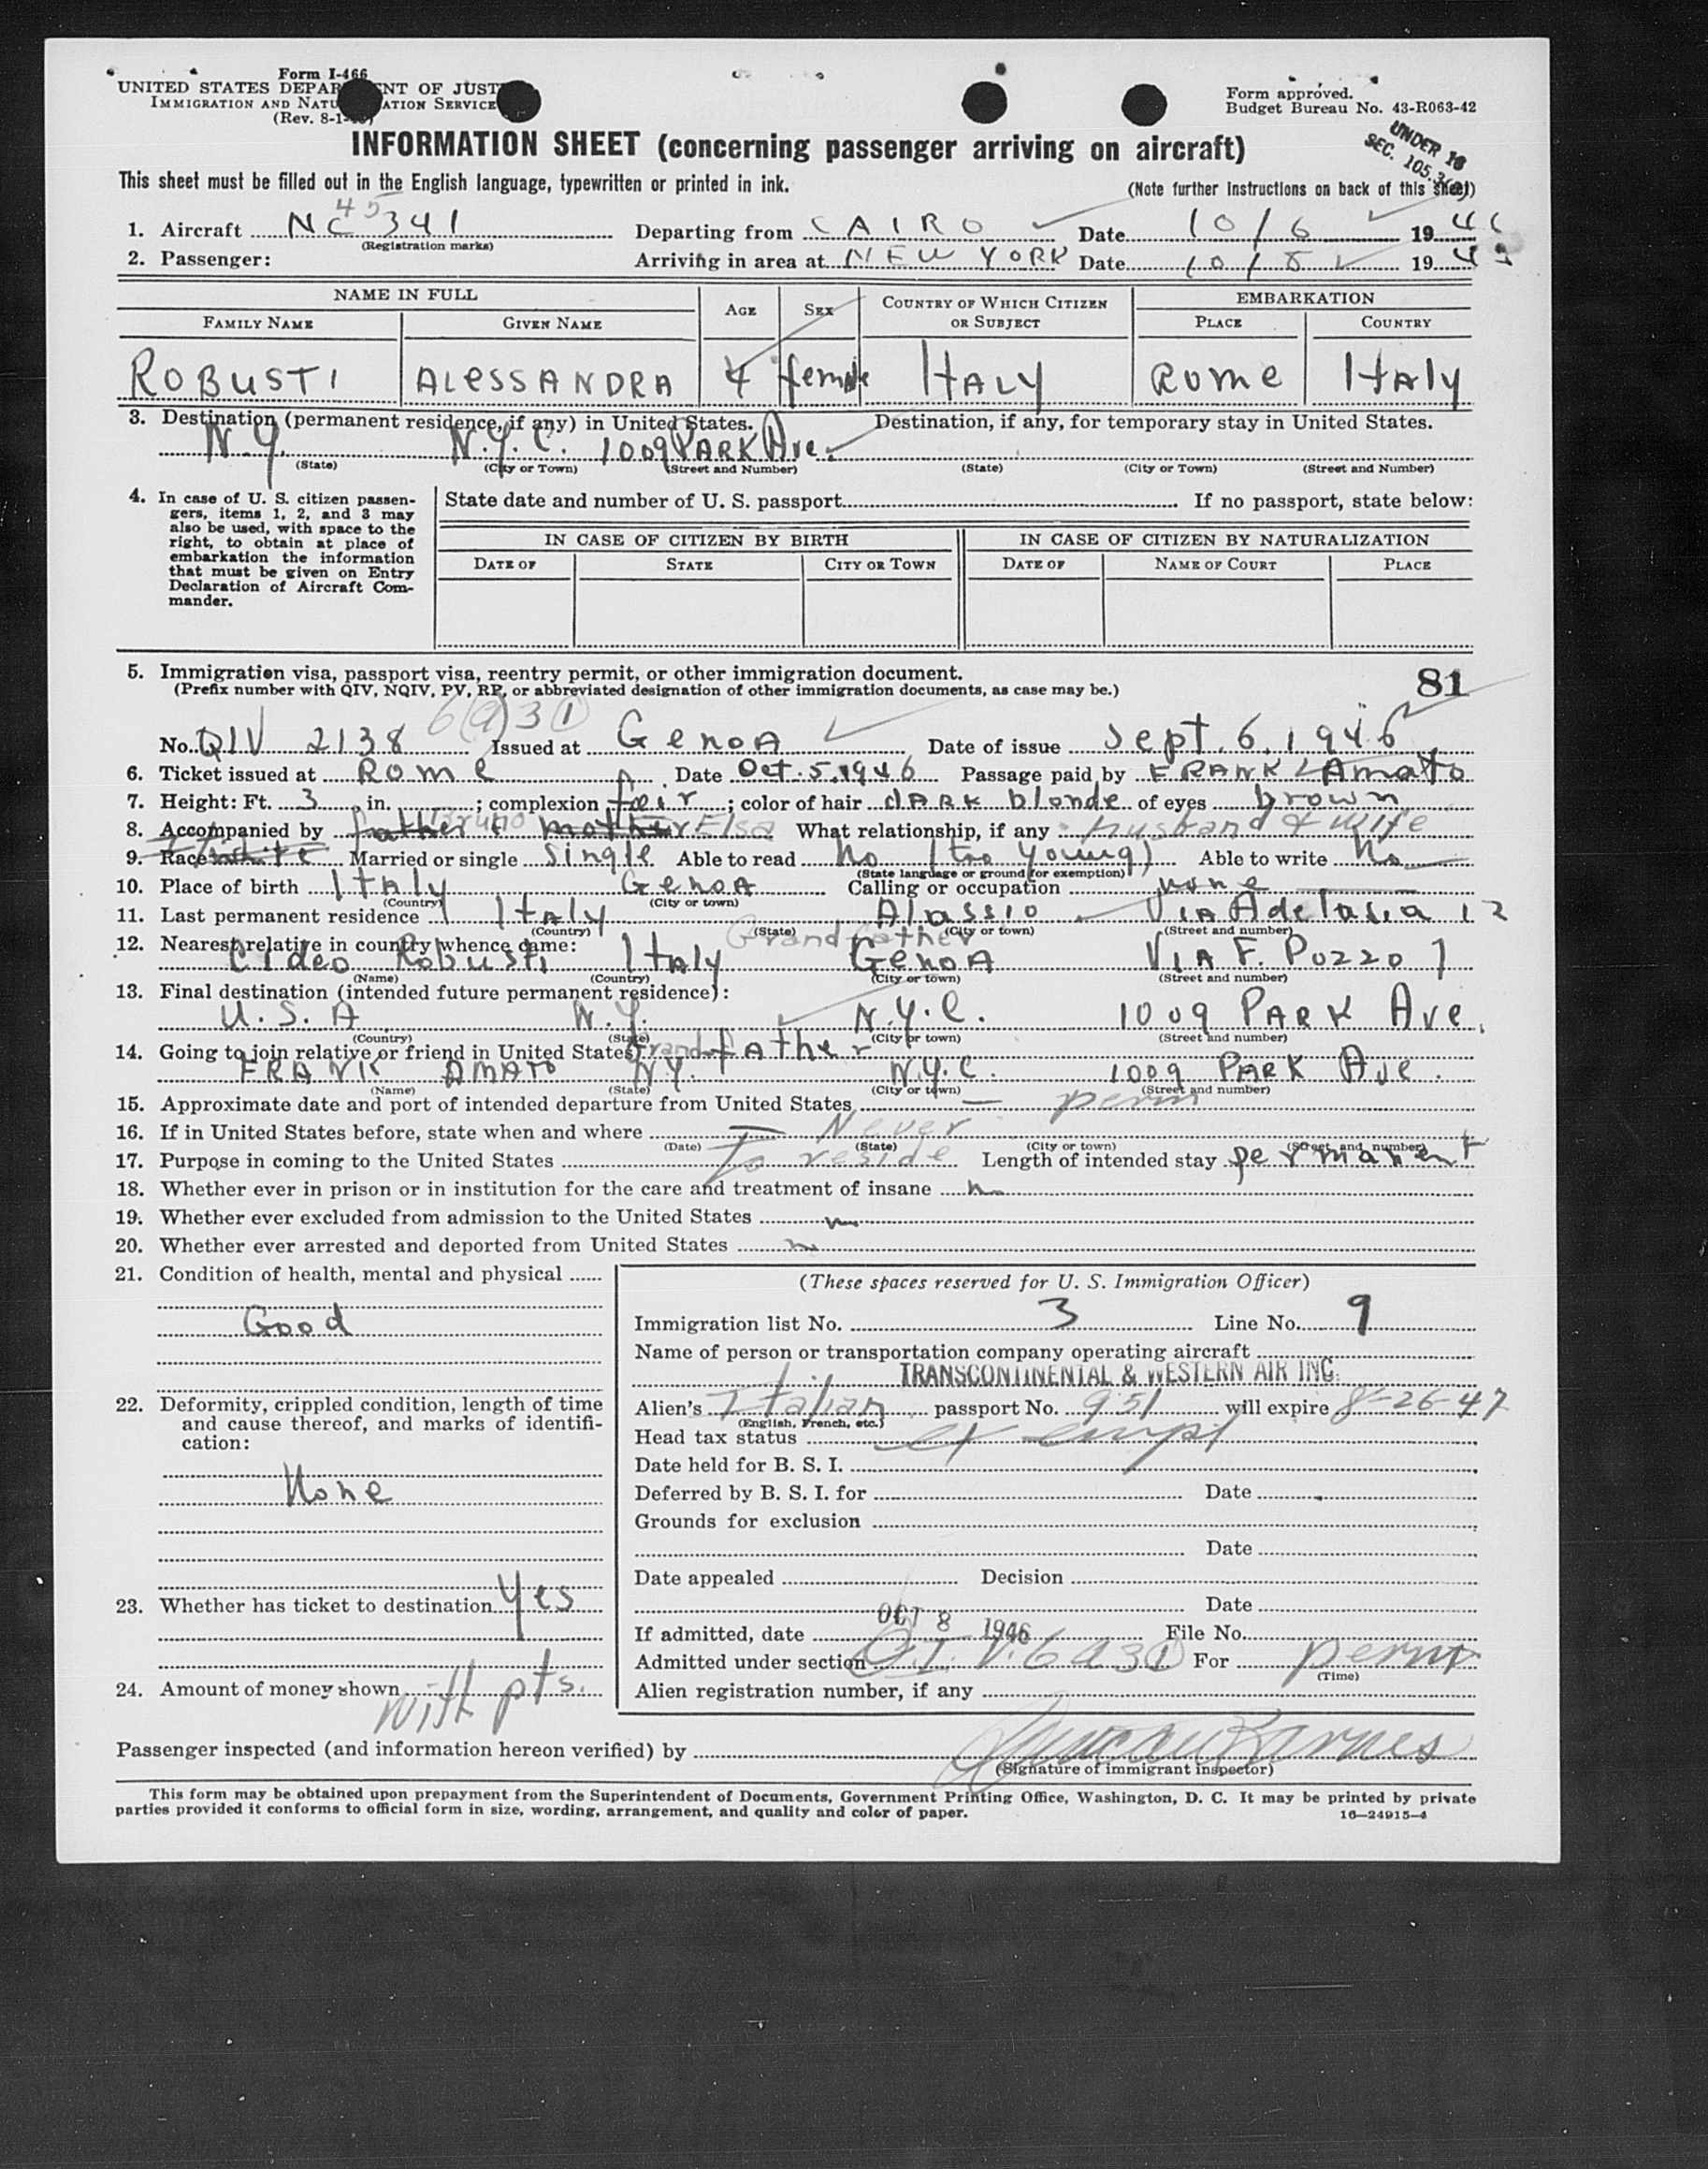 Form I-466
UNITED STATES DEPARTMENT OF JUSTICE
IMMIGRATION AND NATURALIZATION SERVICE
(Rev. 8-1-
Form approved.
Budget Bureau No. 43-R063-42
UNDER 16
SEC. 105.3
INFORMATION SHEET (concerning passenger arriving on aircraft)
This sheet must be filled out in the English language, typewritten or printed in ink.
(Note further instructions on back of this sheet)
45
1. Aircraft NC 341 Departing from CAIRO Date 10/6 1946
(Registration marks)
2. Passenger: Arriving in area at NEW YORK Date 10/8 194
NAME IN FULL AGE SEX COUNTRY OF WHICH CITIZEN OR SUBJECT EMBARKATION
FAMILY NAME GIVEN NAME PLACE COUNTRY
ROBUSTI ALESSANDRA 4 female ITALY Rome ITALY
3. Destination (permanent residence, if any) in United States. Destination, if any, for temporary stay in United States.
N.Y. N.Y.C. 1009 PARK Ave.
(State) (City or Town) (Street and Number) (State) (City or Town) (Street and Number)
4. In case of U. S. citizen passengers, items 1, 2, and 3 may also be used, with space to the right, to obtain at place of embarkation the information that must be given on Entry Declaration of Aircraft Commander.
State date and number of U. S. passport If no passport, state below:
IN CASE OF CITIZEN BY BIRTH IN CASE OF CITIZEN BY NATURALIZATION
DATE OF STATE CITY OR TOWN DATE OF NAME OF COURT PLACE
5. Immigration visa, passport visa, reentry permit, or other immigration document.
(Prefix number with QIV, NQIV, PV, RP, or abbreviated designation of other immigration documents, as case may be.)
81
6(a)3(1)
No. QIV 2138 Issued at GenoA Date of issue Sept. 6. 1946
6. Ticket issued at Rome Date Oct. 5. 1946 Passage paid by FRANK Amato
7. Height: Ft. 3, in. ; complexion fair; color of hair dark blonde of eyes brown
8. Accompanied by father & mother Bruno Elsa What relationship, if any husband & wife
9. Race white Married or single Single Able to read No (too young) Able to write No
(State language or ground for exemption)
10. Place of birth Italy GenoA Calling or occupation none
(Country) (City or town)
11. Last permanent residence Italy Alassio Via Adelasia 12
(Country) (State) (City or town) (Street and number)
Grandfather
12. Nearest relative in country whence came:
Cideo Robusti Italy GenoA Via F. Pozzo 7
(Name) (Country) (City or town) (Street and number)
13. Final destination (intended future permanent residence):
U.S.A N.Y. N.Y.C. 1009 PARK Ave.
(Country) (State) (City or town) (Street and number)
14. Going to join relative or friend in United States: Grandfather
FRANK AMATO N.Y. N.Y.C. 1009 PARK Ave.
(Name) (State) (City or town) (Street and number)
15. Approximate date and port of intended departure from United States — perm
16. If in United States before, state when and where Never
(Date) (State) (City or town) (Street and number)
17. Purpose in coming to the United States To reside Length of intended stay permanent
18. Whether ever in prison or in institution for the care and treatment of insane no
19. Whether ever excluded from admission to the United States no
20. Whether ever arrested and deported from United States no
21. Condition of health, mental and physical
Good
22. Deformity, crippled condition, length of time and cause thereof, and marks of identification:
None
23. Whether has ticket to destination Yes
24. Amount of money shown with pts.
(These spaces reserved for U. S. Immigration Officer)
Immigration list No. 3 Line No. 9
Name of person or transportation company operating aircraft
TRANSCONTINENTAL & WESTERN AIR INC.
Alien's Italian passport No. 951 will expire 8-26-47
(English, French, etc.)
Head tax status exempt
Date held for B. S. I.
Deferred by B. S. I. for Date
Grounds for exclusion
Date
Date appealed Decision
Date
If admitted, date OCT 8 1946 File No.
Admitted under section Q.I.V. 6a3(1) For perm
(Time)
Alien registration number, if any
Passenger inspected (and information hereon verified) by Barnes
(Signature of immigrant inspector)
This form may be obtained upon prepayment from the Superintendent of Documents, Government Printing Office, Washington, D. C. It may be printed by private
parties provided it conforms to official form in size, wording, arrangement, and quality and color of paper.
16—24915-4